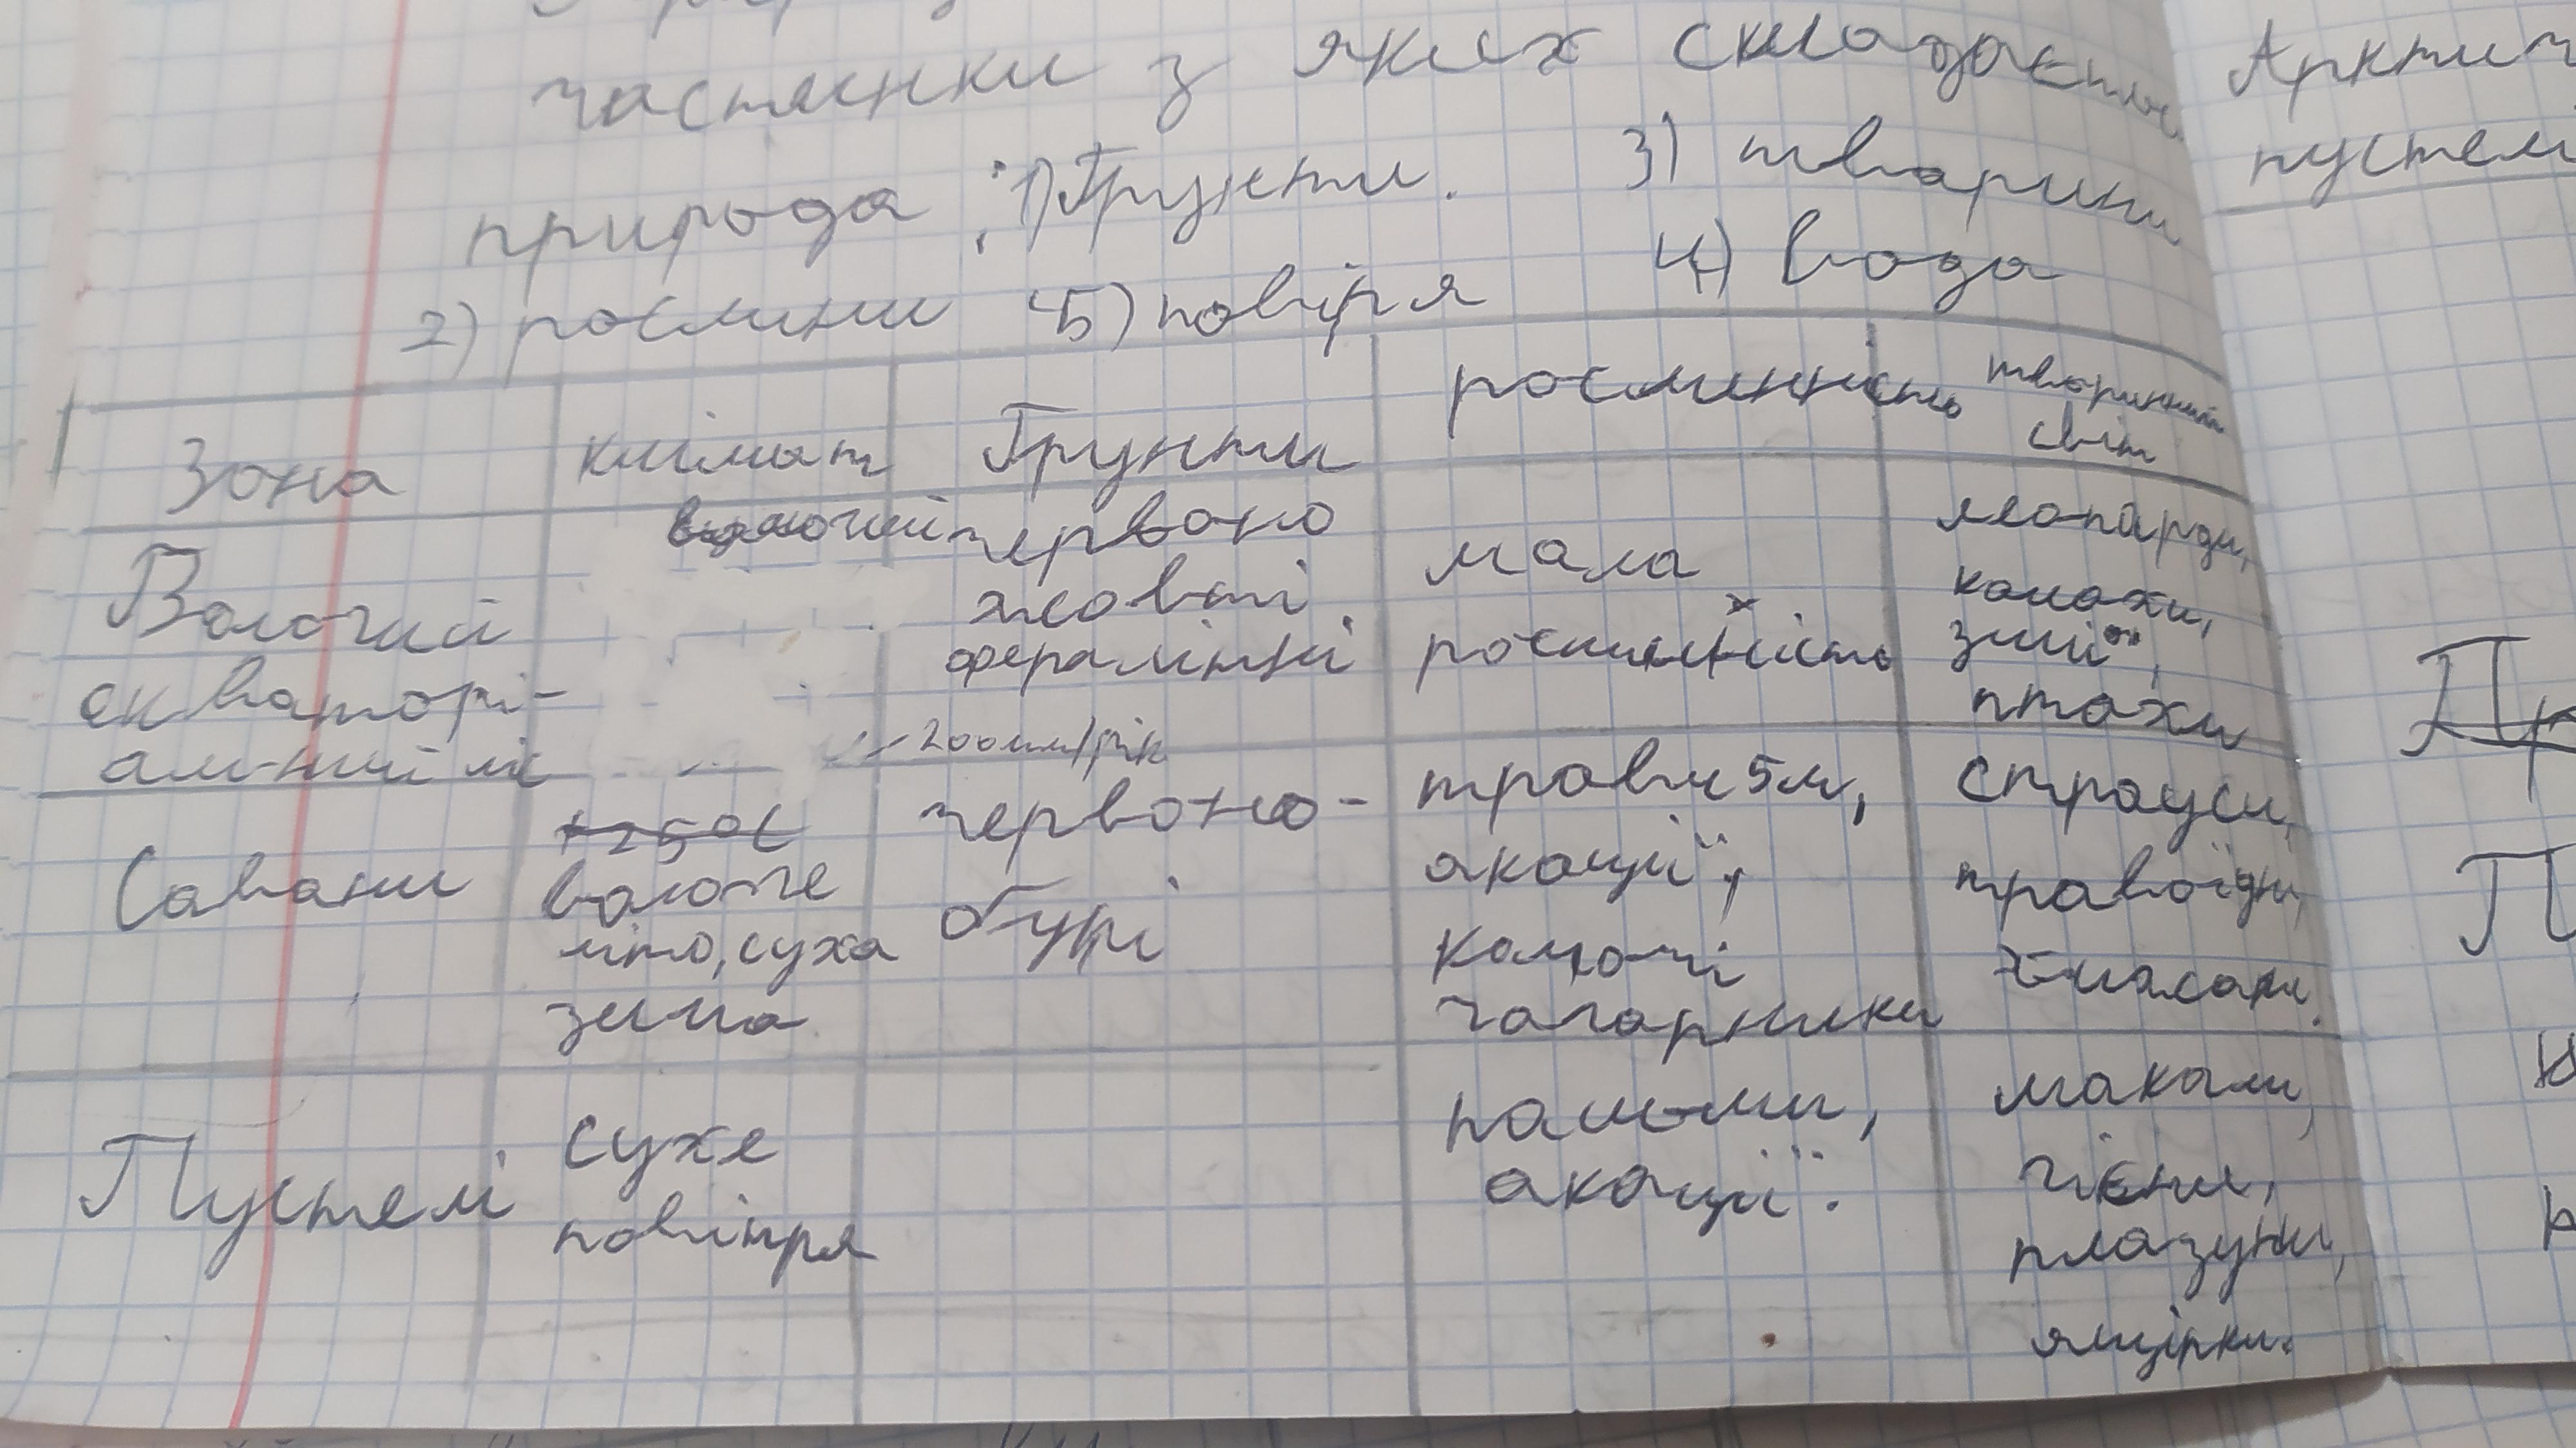 частинки з яких складається
природа : 1) Ґрунти. 3) тварини
2) рослини 5) повіря 4) вода
Зона клімат Ґрунти рослинність тваринний світ
Вологий екваторі-
альний ліс
вологий
червоно
жовті
фералітні
мала
рослинність
леопарди,
комахи,
змії,
птахи
200мм/рік
Савани
+25°C
вологе
літо, суха
зима
червоно-
бурі
трави 5м,
акації,
колючі
чагарники
страуси,
травоїдні,
Пустелі
сухе
повітря
пальми,
акації.
шакали,
гієни,
плазуни,
ящірки.
Арктич
пустелі
Пр
П